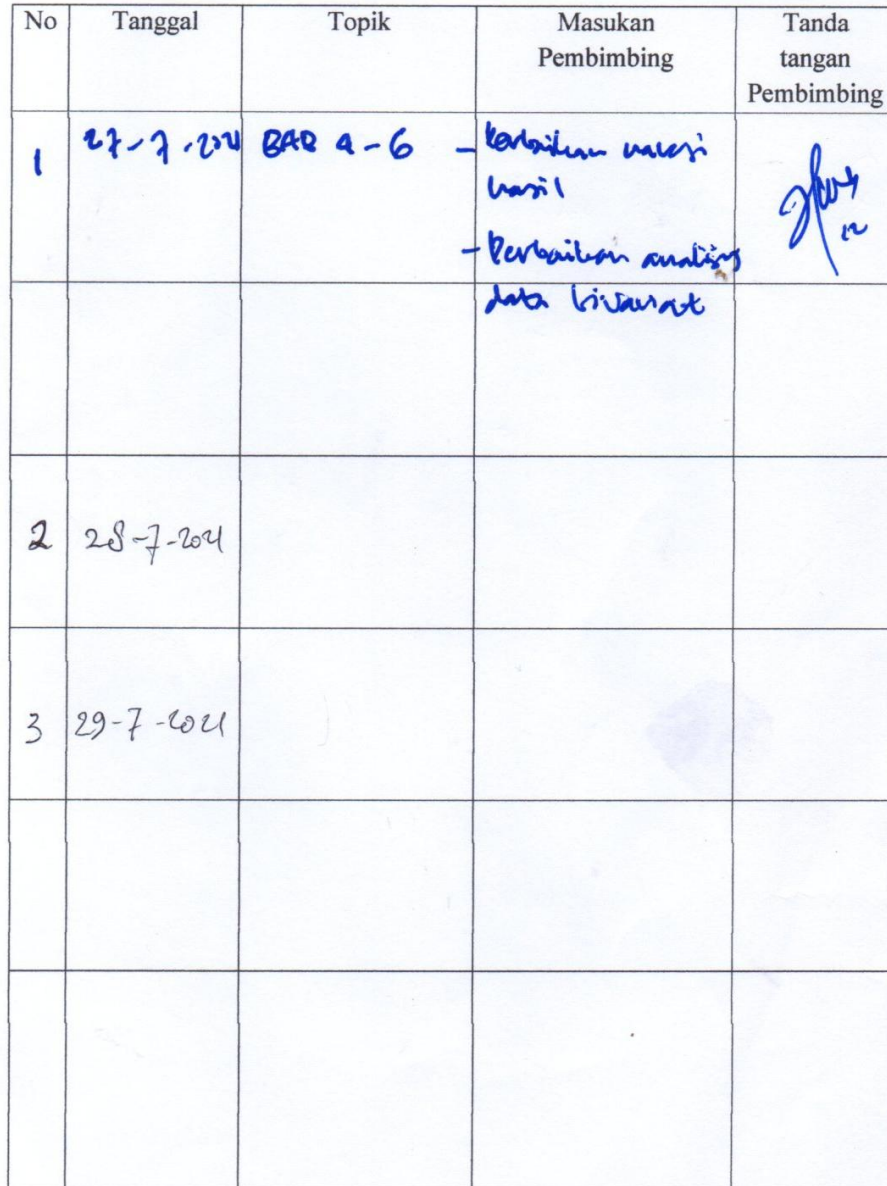 No Tanggal Topik Masukan Pembimbing Tanda tangan Pembimbing
1 27-7-2021 BAB 4-6 - Perbaikan narasi
hasil
- Perbaikan analisis
data bivariat
2 28-7-2021
3 29-7-2021